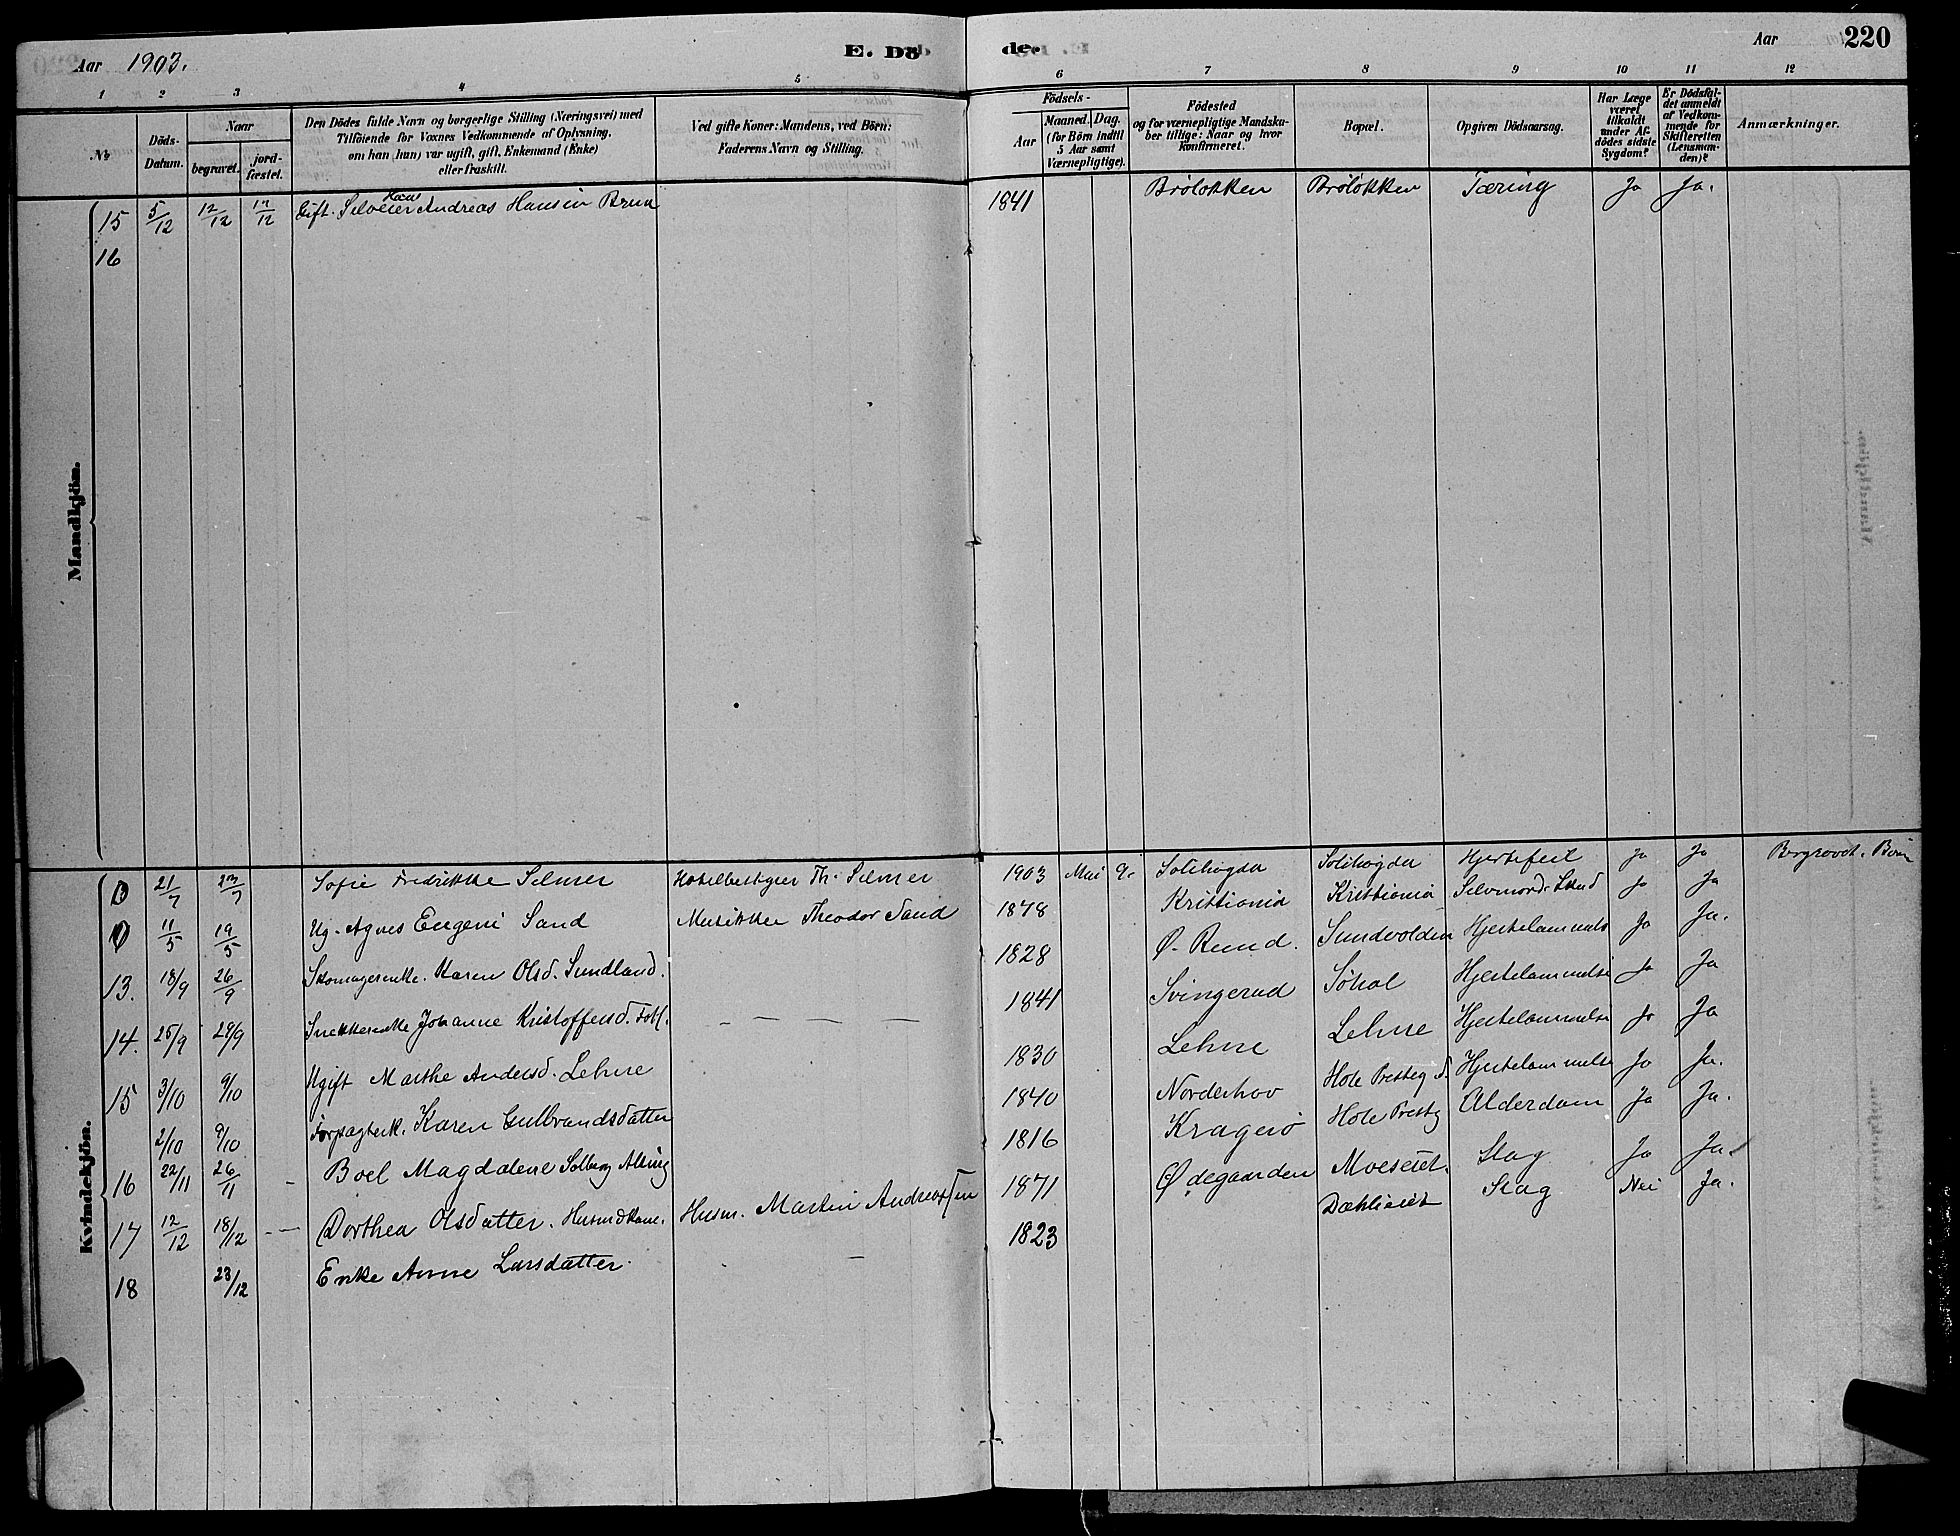 Aar 1903.
E. Döde.
Aar
220
1 2 3 4 5 6 7 8 9 10 11 12
No.
Döds-Datum.
Naar
begravet.
jord-fæstet.
Den Dödes fulde Navn og borgerlige Stilling (Næringsvei) med
Tilföiende for Voxnes Vedkommende af Oplysning,
om han (hun) var ugift, gift, Enkemand (Enke)
eller fraskilt.
Ved gifte Koner: Mandens, ved Börn:
Faderens Navn og Stilling.
Födsels-
Aar
Maaned. Dag.
(for Börn indtil
5 Aar samt
Værnepligtige).
Födested
og for værnepligtige Mandska-
ber tillige: Naar og hvor
konfirmeret.
Bopæl.
Opgiven Dödsaarsag.
Har Læge
været
tilkaldt
under Af-
dödes sidste
Sygdom?
Er Dödsfal-
det anmeldt
af Vedkom-
mende for
Skifteretten
(Lensman-
den)?
Anmærkninger.
Mandkjön.
15 5/12 12/12 12/12 Gift. Selveier Andreas Hansen Brua 1841 Bröløkken Bröløkken Tæring Ja Ja.
16
Kvindekjön.
21/7 23/7 Sofie Fredrikke Selmer Hotelbestyrer Th. Selmer 1903 Mai 9. Solihøgda Solihøgda Hjertefeil Ja Ja
11/5 19/5 Ug. Agnes Eugeni Sand Musikker Theodor Sand 1878 Kristiania Kristiania Ja Ja
13. 18/9 26/9 Skomagerenke. Karen Olsd. Sundland. 1828 Ø. Rund. Sundvolden Hjertelammelse Ja Ja.
14. 25/9 29/9 Snekkerenke Johanne Kristoffersd. 1841 Svingerud Søhol Hjertelammelse Ja Ja
15 3/10 9/10 Ugift Marthe Andersd. Lehne 1830 Lehne Lehne Hjertelammelse Ja Ja
2/10 9/10 Karen Gulbrandsdatter 1840 Norderhov Hole Hjertelammelse Ja Ja.
16 22/11 26/11 - Boel Magdalene Solberg 1816 Kragerø Hole Prestg Alderdom Ja Ja.
17 12/12 18/12 - - Dorthea Olsdatter. Husmdkone. Husm. Martin Andreassen 1871 Ødegaarden Moeseiet. Slag Ja Ja
18 23/12 Enke Anne Larsdatter. 1823 Dæhlieiet Slag Nei Ja.